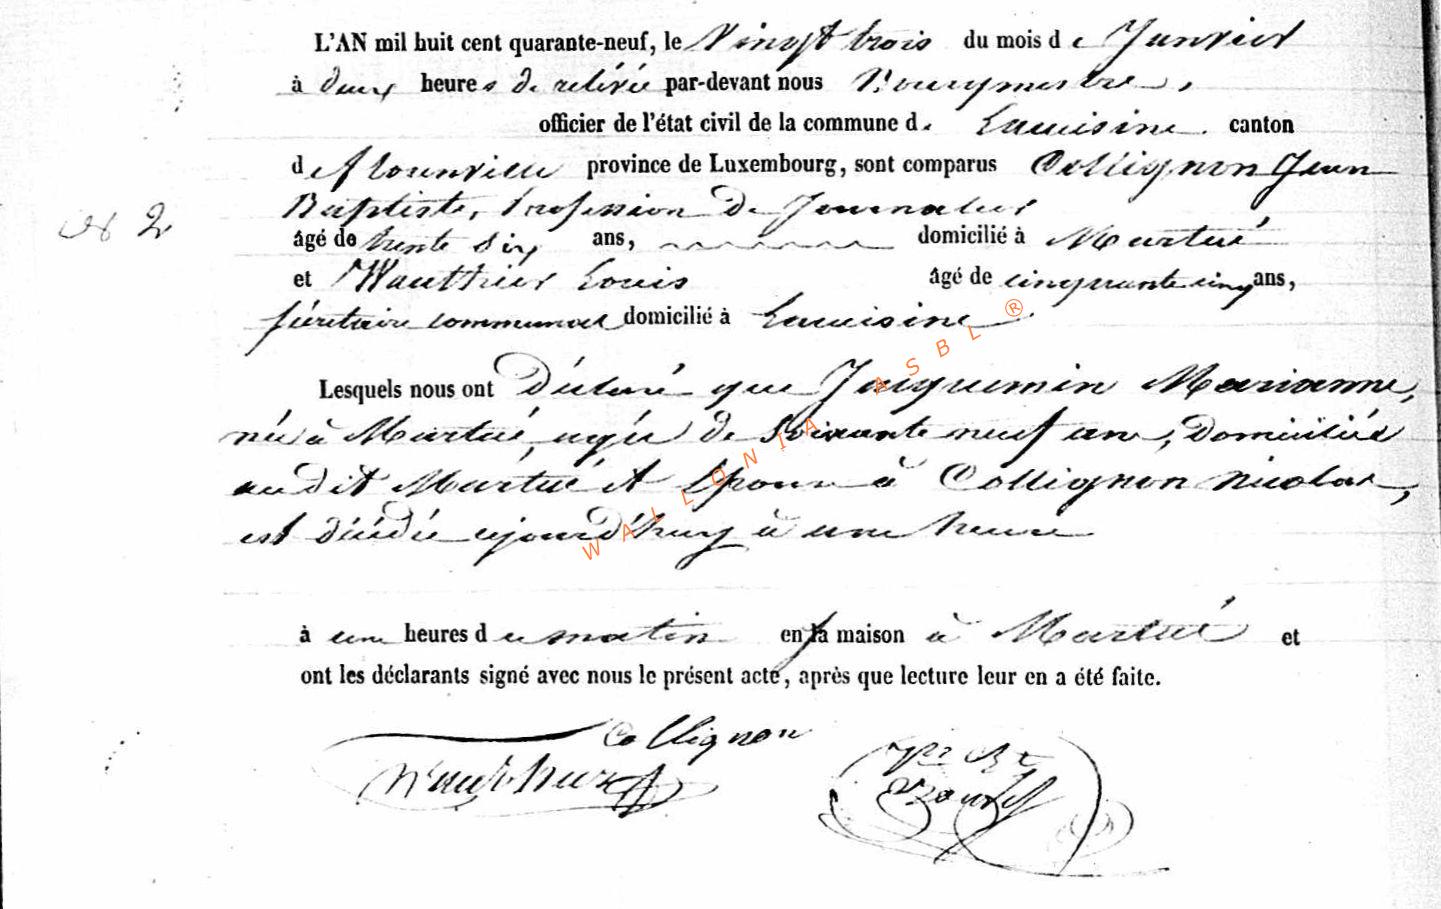 L'AN mil huit cent quarante-neuf, le Vingt trois du mois de Janvier
à deux heures de relevée par-devant nous Bourgmestre,
officier de l'état civil de la commune de Lacuisine canton
de florenville province de Luxembourg, sont comparus Collignon Jean
Baptiste, Profession de Journalier
N° 2
âgé de trente six ans, domicilié à Martué
et Wauthier Louis âgé de cinquante cinq ans,
sécritaire communal domicilié à Lacuisine
Lesquels nous ont Déclaré que Jacquemin Marianne,
née à Martué, agée de Soixante neuf ans, Domiciliée
audit Martué et Epouse à Collignon Nicolas,
est décédée ajourd'huy à une heure
à une heures du matin en sa maison à Martué et
ont les déclarants signé avec nous le présent acte, après que lecture leur en a été faite.
Collignon
Wauthier
WALLONIA ASBL ®